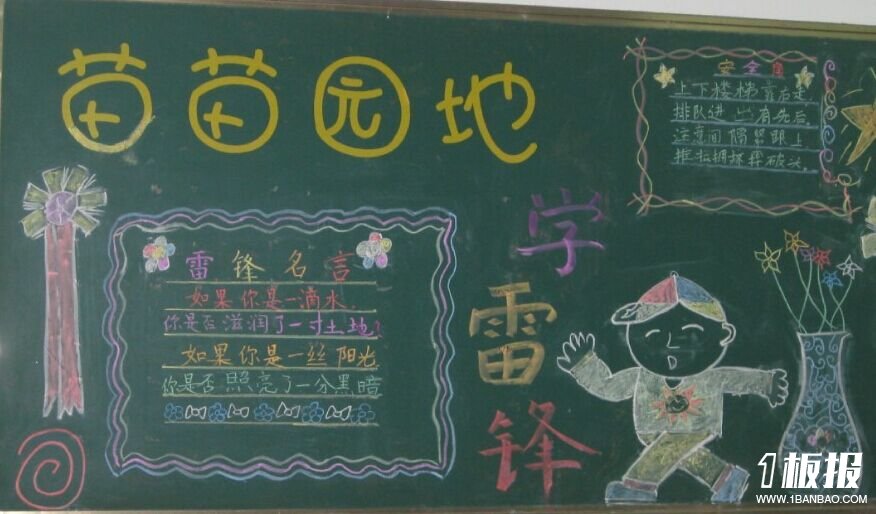 苗苗园地
安全
上下楼梯靠右走
排队进出有先后
注意间隔紧跟上
推拉拥挤摔破头
学
雷
锋
雷锋名言
如果你是一滴水,
你是否滋润了一寸土地?
如果你是一丝阳光
你是否照亮了一分黑暗
1板报
WWW.1BANBAO.COM